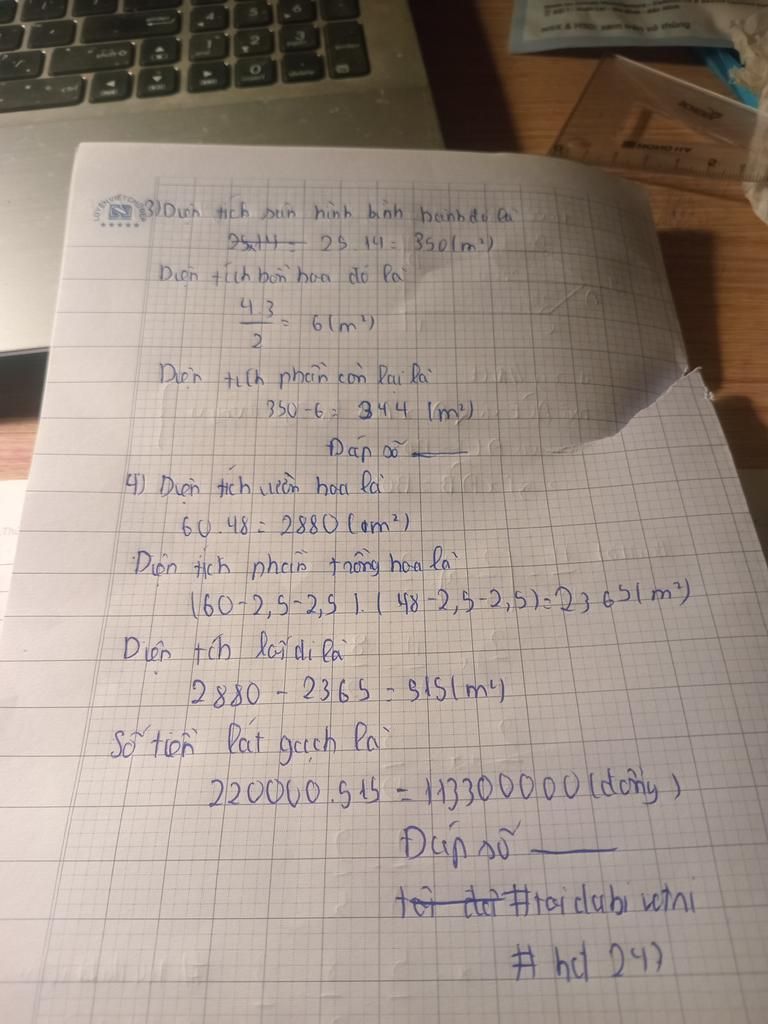 3) Diện tích sân hình bình hành đó là
25.14 = 25.14 = 350 (m²)
Diện tích bồn hoa đó là
4.3
2
= 6 (m²)
Diện tích phần còn lại là
350-6 = 344 (m²)
Đáp số
4) Diện tích vườn hoa là
60.48 = 2880 (m²)
Diện tích phần trồng hoa là
(60-2,5-2,5).(48-2,5-2,5) = 2365 (m²)
Diện tích lối đi là
2880 - 2365 = 515 (m²)
Số tiền lát gạch là
220000.515 = 113300000 (đồng)
Đáp số